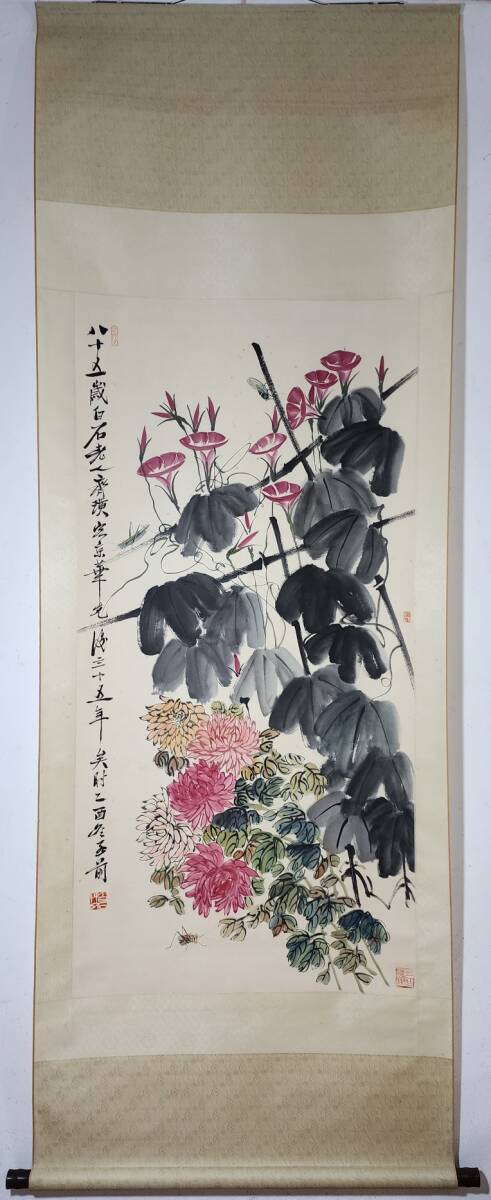 八十五歲白石老人齊璜客京華先後三十五年矣時乙酉冬子前